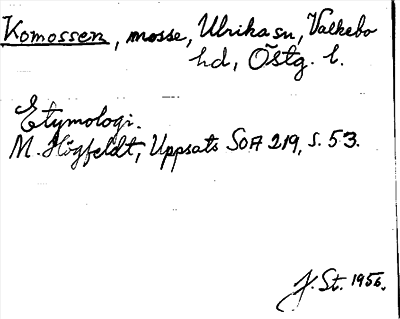 Komossen, mosse, Ulrika sn, Valkebo
hd, Östg. l.
Etymologi.
M. Högfeldt, Uppsats SOA 219, s. 53.
J. St. 1956.